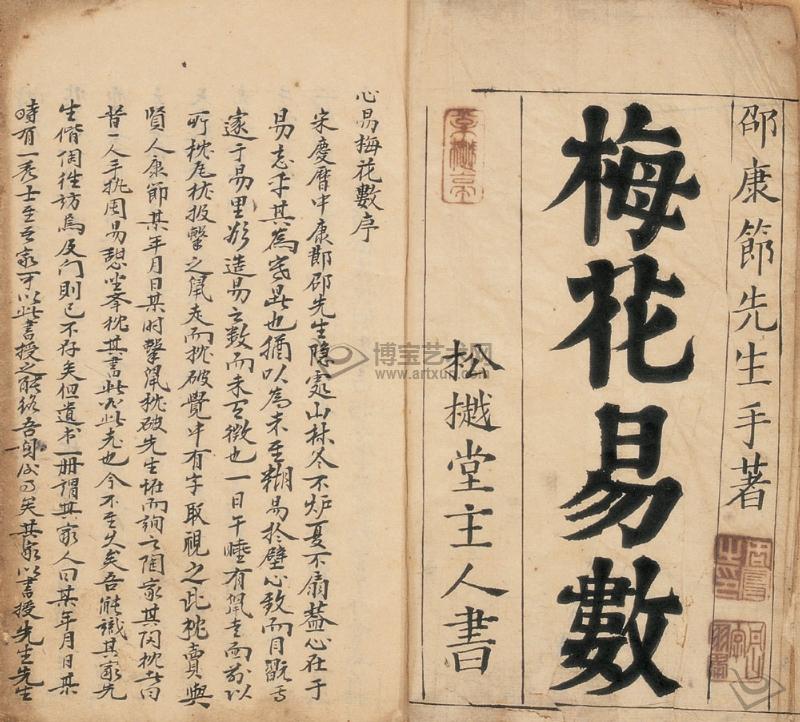 邵康節先生手著
梅花易數
松樾堂主人書
心易梅花數序
宋慶曆中康節邵先生隱處山林冬不炉夏不扇蓋心在于
易忘乎其為寒暑也猶以為未至糊易於壁心致而目翫焉
遂于易里欲造易之数而未百徵也一日午睡有鼠走而前以
所枕瓦枕投擊之鼠走而枕破覺中有字取視之此枕賣與
賢人康節某年月日某时擊鼠枕破先生恠而詢之陶家其陶枕者曰
昔一人手执周易憩坐举枕其書此必此老也今不至久矣吾能識其家先
生偕陶徃訪焉及门則已不存矣但遺书一册謂其家人曰某年月日某
時有一秀士至吾家可以此書授之能终吾身后事矣其家以書授先生先生
博宝艺术网
www.artxun.com